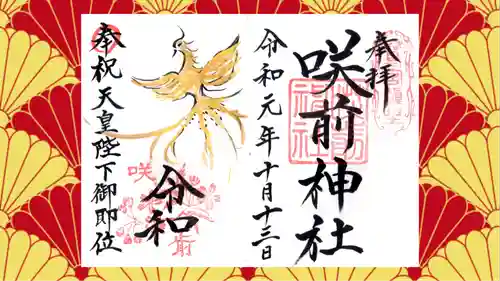 奉拝
咲前神社
令和元年十月十三日
令和
奉祝天皇陛下御即位
咲
前